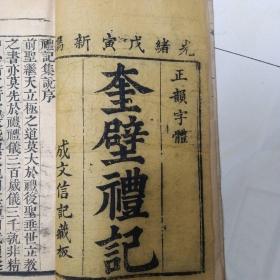 光緒戊寅新鐫
正韻字體
奎壁禮記
成文信記藏板
禮記集說序
前聖繼天立極之道莫大於禮後聖垂世立教
之書亦莫先於禮禮儀三百威儀三千孰非精